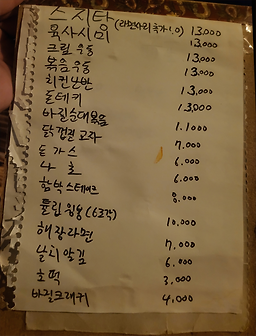 스지탕 (라면사리 추가 1.0) 13,000
육사시미 13,000
크림우동 13,000
볶음우동 13,000
치킨난반 13,000
돈테키 13,000
바질순대볶음 1.1000
닭껍질교자 7.000
돈가스 6.000
나초 6.000
함박스테이크 8.000
튤립윙봉 (6조각) 10.000
해장라면 7.000
날치알김 6.000
호떡 3.000
바질크래커 4,000